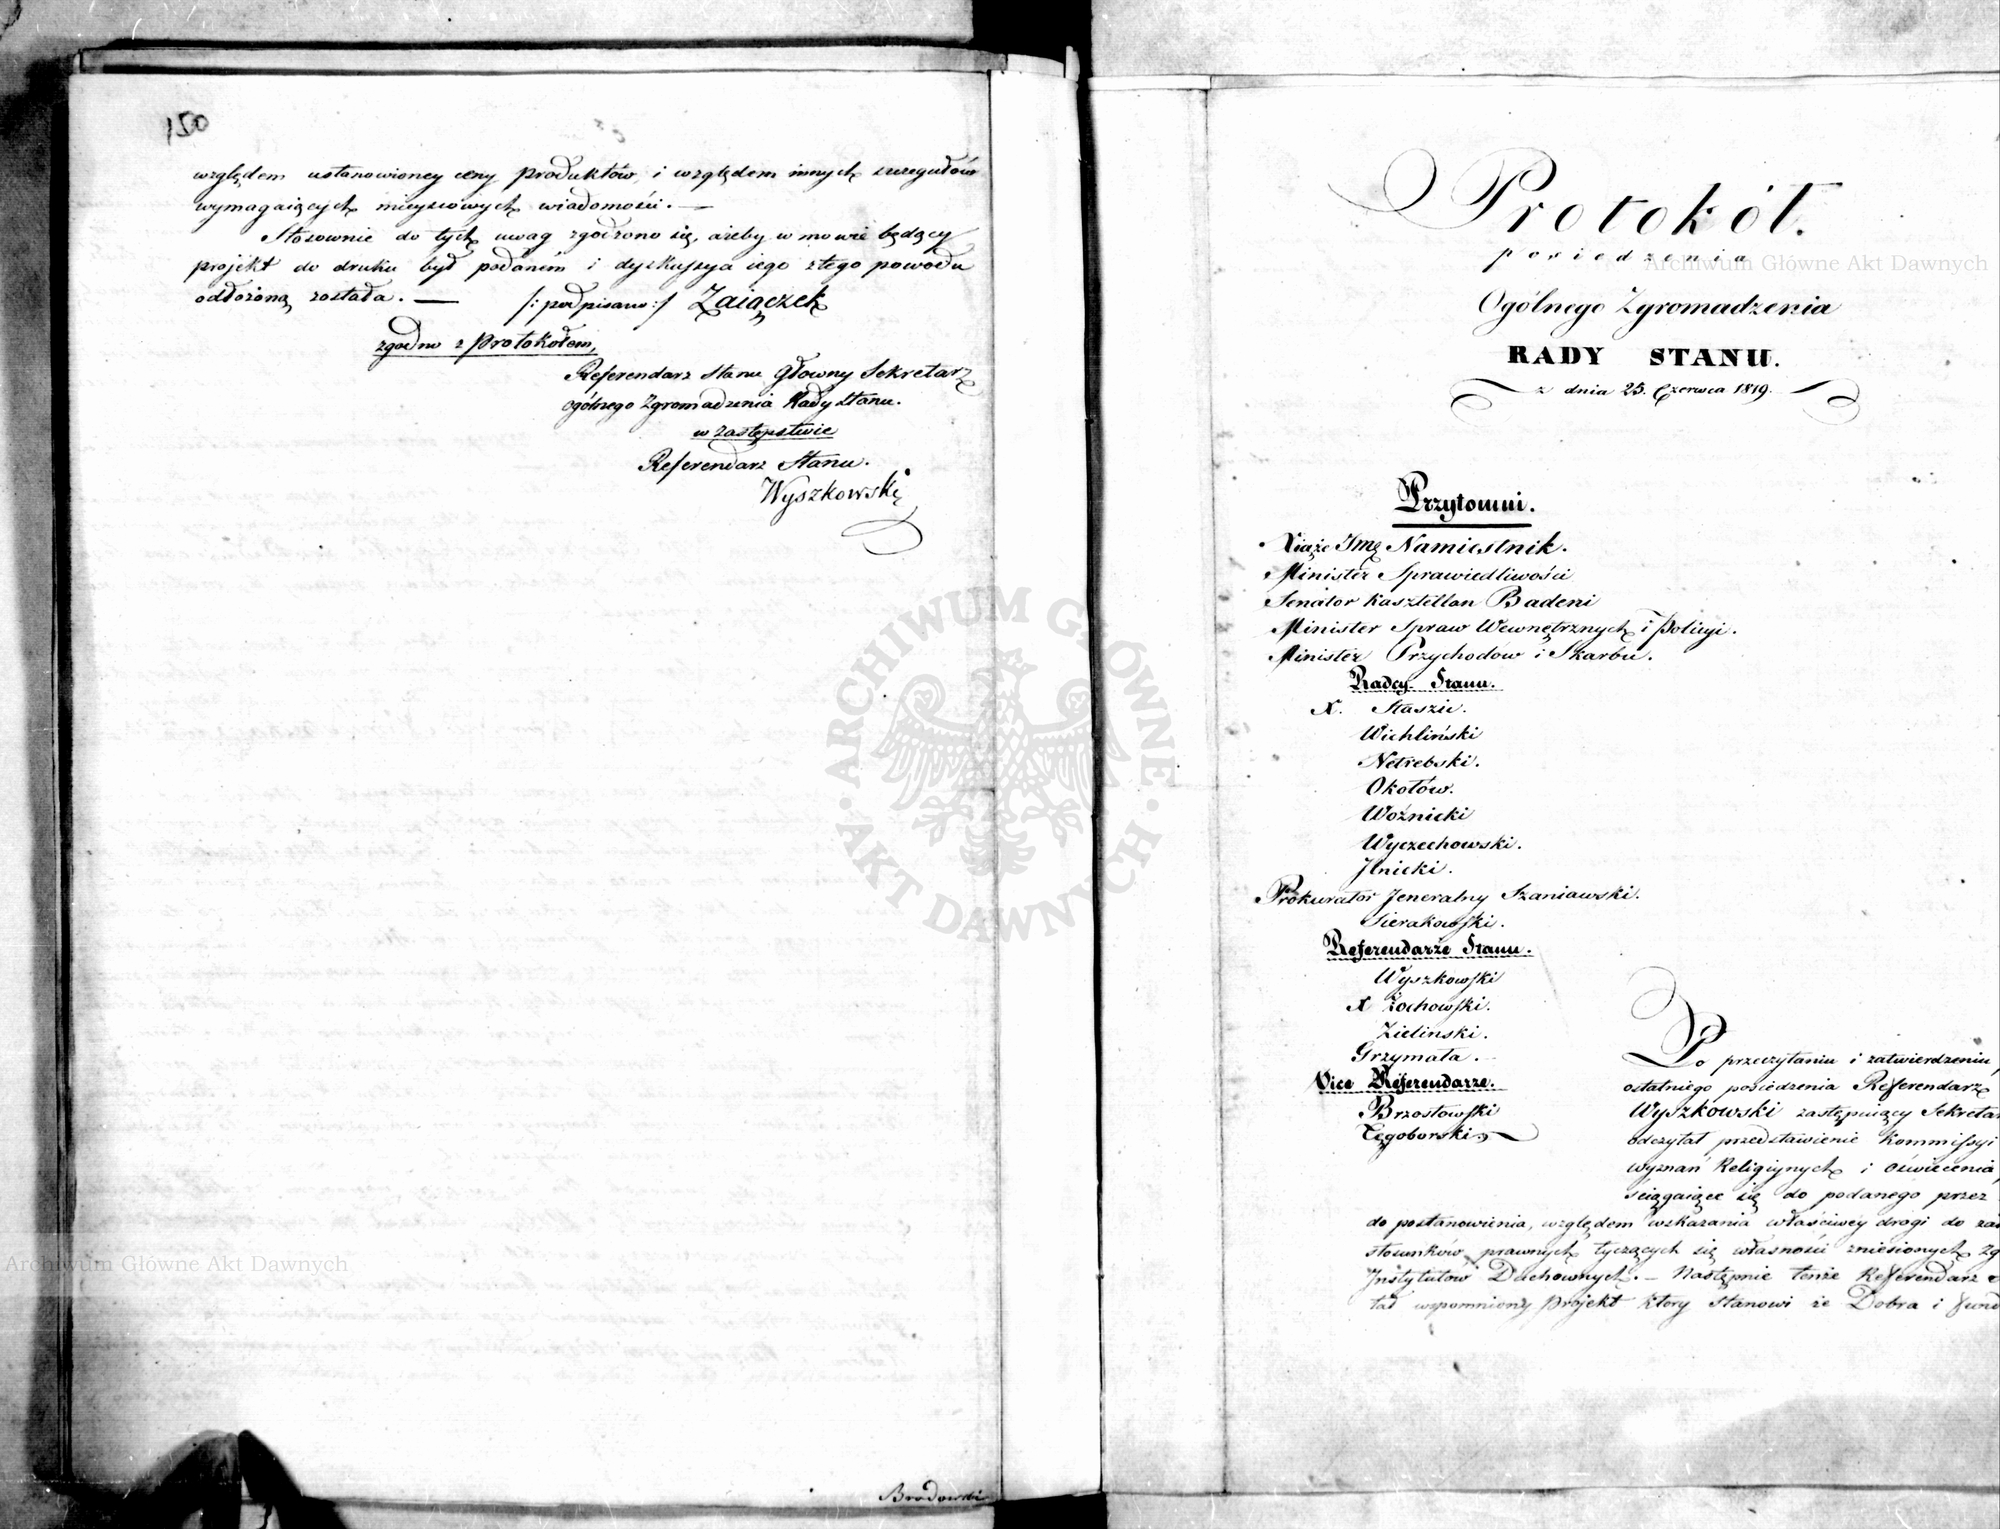 150
względem ustanowioney ceny produktów, i względem innych szczegułów
wymagaiących mieyscowych wiadomości. —
Stosownie do tych uwag zgodzono się, ażeby w mowie będący
projekt do druku był podaném i dyskussya iego z tego powodu
odłożoną została. — /: podpisano :/ Zaiączek
zgodno z Protokołem,
Referendarz Stanu Główny Sekretarz
ogólnego Zgromadzenia Rady Stanu.
w zastępstwie
Referendarz Stanu.
Wyszkowski
Brodowski
Protokół.
posiedzenia
Ogólnego Zgromadzenia
RADY STANU.
z dnia 25. Czerwca 1819.
Przytomni.
Xiąże Jmć Namiestnik.
Minister Sprawiedliwości
Senator Kasztellan Badeni
Minister Spraw Wewnętrznych i Policyi.
Minister Przychodow i Skarbu.
Radcy Stanu.
X. Staszic.
Wichliński
Netrebski.
Okołów.
Woźnicki
Wyczechowski.
Jlnicki.
Prokurator Jeneralny Szaniawski.
Sierakowski.
Referendarze Stanu.
Wyszkowski
X Żochowski.
Zieliński.
Grzymała.
Vice Referendarze.
Brzostowski
Tęgoborski
Po przeczytaniu i zatwierdzeniu,
ostatniego posiedzenia Referendarz
Wyszkowski zastępuiący Sekretar
odczytał przedstawienie Kommissyi
wyznań Religiynych i Oświecenia,
ściągaiące się do podanego przez
do postanowienia, względem wskazania właściwey drogi do
stosunków prawnych tyczących się własności zniesionych Zg
Jnstytutów Duchownych. — Następnie tenże Referendarz
tał wspomniony Projekt ktory Stanowi że Dobra i fund
Archiwum Główne Akt Dawnych
Archiwum Główne Akt Dawnych
ARCHIWUM GŁÓWNE · AKT DAWNYCH ·